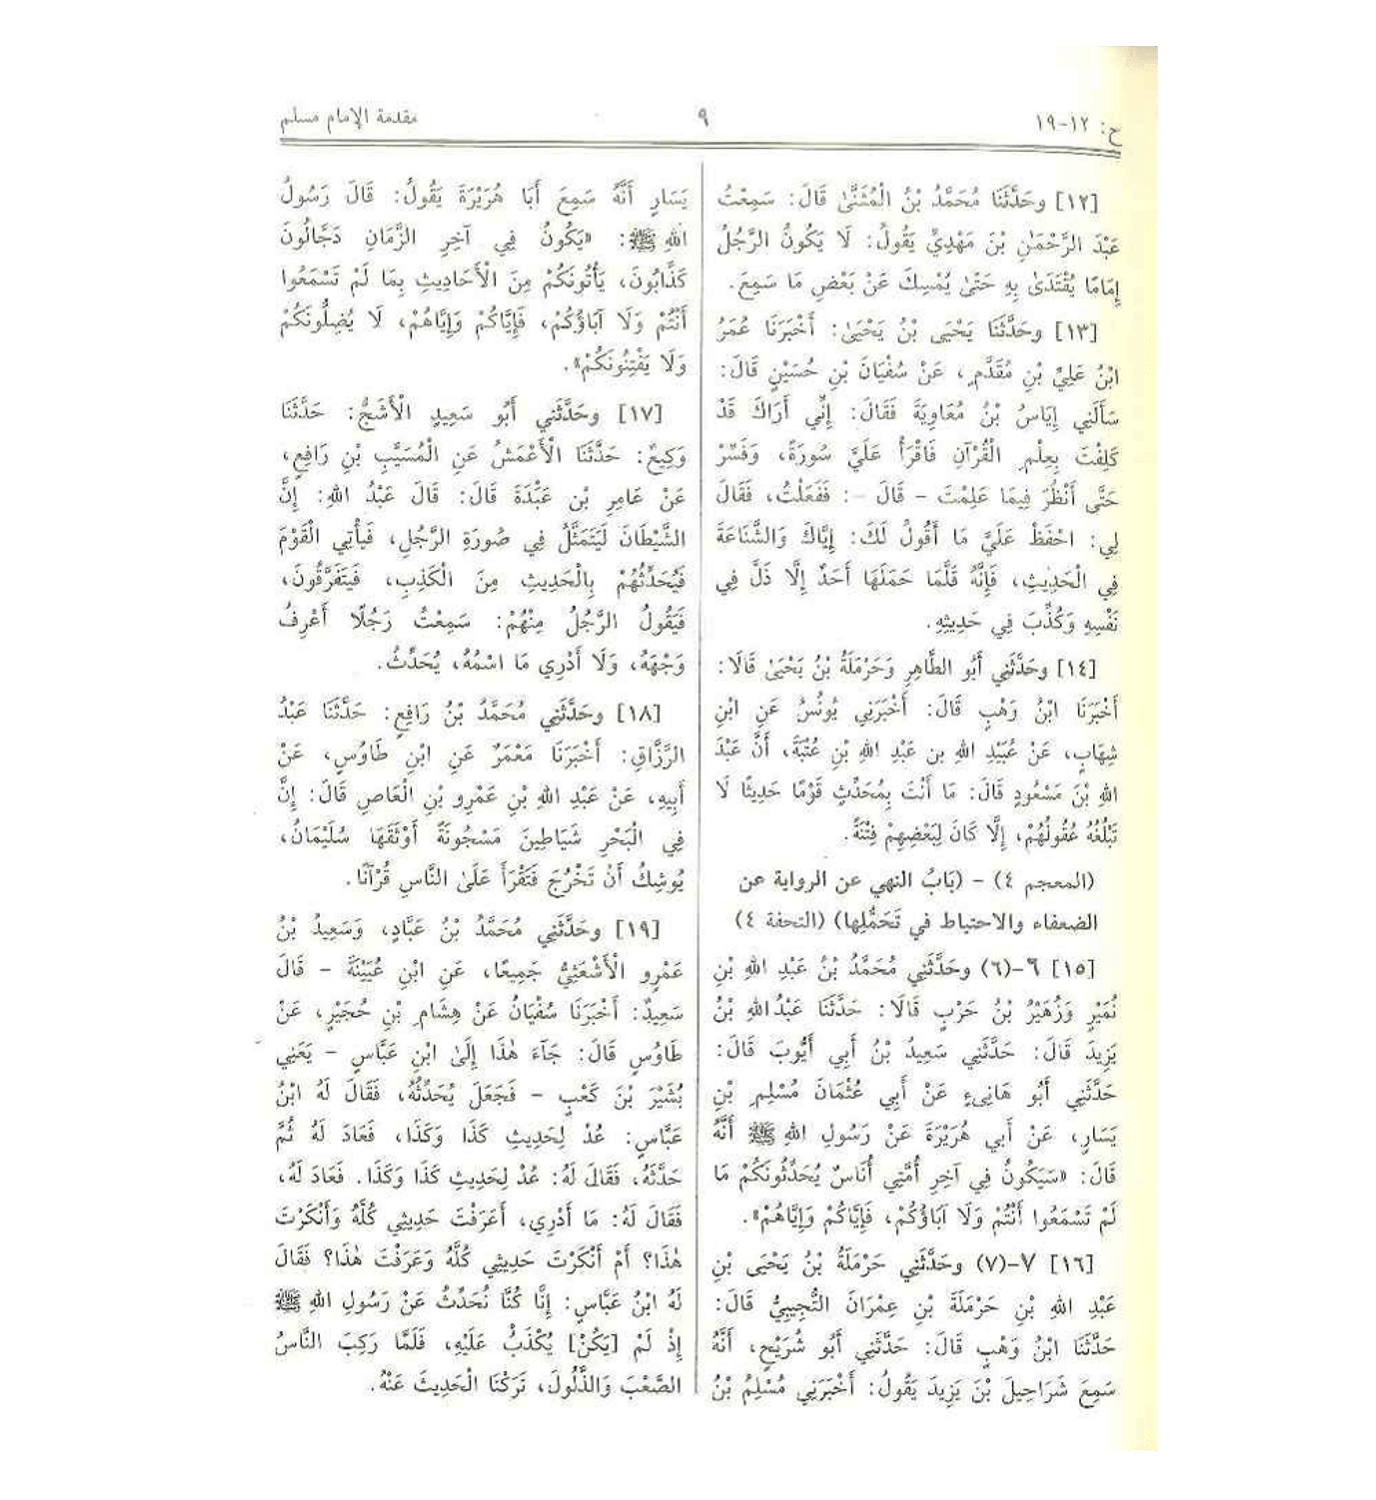 ح: ١٢-١٩
٩
مقدمة الإمام مسلم
[١٢] وحَدَّثَنَا مُحَمَّدُ بْنُ الْمُثَنَّىٰ قَالَ: سَمِعْتُ
عَبْدَ الرَّحْمَٰنِ بْنَ مَهْدِيٍّ يَقُولُ: لَا يَكُونُ الرَّجُلُ
إِمَامًا يُقْتَدَىٰ بِهِ حَتَّىٰ يُمْسِكَ عَنْ بَعْضِ مَا سَمِعَ.
[١٣] وحَدَّثَنَا يَحْيَى بْنُ يَحْيَىٰ: أَخْبَرَنَا عُمَرُ
ابْنُ عَلِيِّ بْنِ مُقَدَّمٍ، عَنْ سُفْيَانَ بْنِ حُسَيْنٍ قَالَ:
سَأَلَنِي إِيَاسُ بْنُ مُعَاوِيَةَ فَقَالَ: إِنِّي أَرَاكَ قَدْ
كَلِفْتَ بِعِلْمِ الْقُرْآنِ فَاقْرَأْ عَلَيَّ سُورَةً، وَفَسِّرْ
حَتَّى أَنْظُرَ فِيمَا عَلِمْتَ - قَالَ -: فَفَعَلْتُ، فَقَالَ
لِي: احْفَظْ عَلَيَّ مَا أَقُولُ لَكَ: إِيَّاكَ وَالشَّنَاعَةَ
فِي الْحَدِيثِ، فَإِنَّهُ قَلَّمَا حَمَلَهَا أَحَدٌ إِلَّا ذَلَّ فِي
نَفْسِهِ وَكُذِّبَ فِي حَدِيثِهِ.
[١٤] وحَدَّثَنِي أَبُو الطَّاهِرِ وَحَرْمَلَةُ بْنُ يَحْيَىٰ قَالَا:
أَخْبَرَنَا ابْنُ وَهْبٍ قَالَ: أَخْبَرَنِي يُونُسُ عَنِ ابْنِ
شِهَابٍ، عَنْ عُبَيْدِ اللهِ بن عَبْدِ اللهِ بْنِ عُتْبَةَ، أَنَّ عَبْدَ
اللهِ بْنَ مَسْعُودٍ قَالَ: مَا أَنْتَ بِمُحَدِّثٍ قَوْمًا حَدِيثًا لَا
تَبْلُغُهُ عُقُولُهُمْ، إِلَّا كَانَ لِبَعْضِهِمْ فِتْنَةً.
(المعجم ٤) - (بَابُ النهي عن الرواية عن
الضعفاء والاحتياط في تَحَمُّلِها) (التحفة ٤)
[١٥] ٦-(٦) وحَدَّثَنِي مُحَمَّدُ بْنُ عَبْدِ اللهِ بْنِ
نُمَيْرٍ وَزُهَيْرُ بْنُ حَرْبٍ قَالَا: حَدَّثَنَا عَبْدُ اللهِ بْنُ
يَزِيدَ قَالَ: حَدَّثَنِي سَعِيدُ بْنُ أَبِي أَيُّوبَ قَالَ:
حَدَّثَنِي أَبُو هَانِىءٍ عَنْ أَبِي عُثْمَانَ مُسْلِمِ بْنِ
يَسَارٍ، عَنْ أَبِي هُرَيْرَةَ عَنْ رَسُولِ اللهِ ﷺ أَنَّهُ
قَالَ: «سَيَكُونُ فِي آخِرِ أُمَّتِي أُنَاسٌ يُحَدِّثُونَكُمْ مَا
لَمْ تَسْمَعُوا أَنْتُمْ وَلَا آبَاؤُكُمْ، فَإِيَّاكُمْ وَإِيَّاهُمْ».
[١٦] ٧-(٧) وحَدَّثَنِي حَرْمَلَةُ بْنُ يَحْيَى بْنِ
عَبْدِ اللهِ بْنِ حَرْمَلَةَ بْنِ عِمْرَانَ التُّجِيبِيُّ قَالَ:
حَدَّثَنَا ابْنُ وَهْبٍ قَالَ: حَدَّثَنِي أَبُو شُرَيْحٍ، أَنَّهُ
سَمِعَ شَرَاحِيلَ بْنَ يَزِيدَ يَقُولُ: أَخْبَرَنِي مُسْلِمُ بْنُ
يَسَارٍ أَنَّهُ سَمِعَ أَبَا هُرَيْرَةَ يَقُولُ: قَالَ رَسُولُ
اللهِ ﷺ: «يَكُونُ فِي آخِرِ الزَّمَانِ دَجَّالُونَ
كَذَّابُونَ، يَأْتُونَكُمْ مِنَ الْأَحَادِيثِ بِمَا لَمْ تَسْمَعُوا
أَنْتُمْ وَلَا آبَاؤُكُمْ، فَإِيَّاكُمْ وَإِيَّاهُمْ، لَا يُضِلُّونَكُمْ
وَلَا يَفْتِنُونَكُمْ».
[١٧] وحَدَّثَنِي أَبُو سَعِيدٍ الْأَشَجُّ: حَدَّثَنَا
وَكِيعٌ: حَدَّثَنَا الْأَعْمَشُ عَنِ الْمُسَيَّبِ بْنِ رَافِعٍ،
عَنْ عَامِرِ بْنِ عَبْدَةَ قَالَ: قَالَ عَبْدُ اللهِ: إِنَّ
الشَّيْطَانَ لَيَتَمَثَّلُ فِي صُورَةِ الرَّجُلِ، فَيَأْتِي الْقَوْمَ
فَيُحَدِّثُهُمْ بِالْحَدِيثِ مِنَ الْكَذِبِ، فَيَتَفَرَّقُونَ،
فَيَقُولُ الرَّجُلُ مِنْهُمْ: سَمِعْتُ رَجُلًا أَعْرِفُ
وَجْهَهُ، وَلَا أَدْرِي مَا اسْمُهُ، يُحَدِّثُ.
[١٨] وحَدَّثَنِي مُحَمَّدُ بْنُ رَافِعٍ: حَدَّثَنَا عَبْدُ
الرَّزَّاقِ: أَخْبَرَنَا مَعْمَرٌ عَنِ ابْنِ طَاوُسٍ، عَنْ
أَبِيهِ، عَنْ عَبْدِ اللهِ بْنِ عَمْرِو بْنِ الْعَاصِ قَالَ: إِنَّ
فِي الْبَحْرِ شَيَاطِينَ مَسْجُونَةً أَوْثَقَهَا سُلَيْمَانُ،
يُوشِكُ أَنْ تَخْرُجَ فَتَقْرَأَ عَلَى النَّاسِ قُرْآنًا.
[١٩] وحَدَّثَنِي مُحَمَّدُ بْنُ عَبَّادٍ، وَسَعِيدُ بْنُ
عَمْرٍو الْأَشْعَثِيُّ جَمِيعًا، عَنِ ابْنِ عُيَيْنَةَ - قَالَ
سَعِيدٌ: أَخْبَرَنَا سُفْيَانُ عَنْ هِشَامِ بْنِ حُجَيْرٍ، عَنْ
طَاوُسٍ قَالَ: جَآءَ هٰذَا إِلَىٰ ابْنِ عَبَّاسٍ - يَعْنِي
بُشَيْرَ بْنَ كَعْبٍ - فَجَعَلَ يُحَدِّثُهُ، فَقَالَ لَهُ ابْنُ
عَبَّاسٍ: عُدْ لِحَدِيثِ كَذَا وَكَذَا، فَعَادَ لَهُ ثُمَّ
حَدَّثَهُ، فَقَالَ لَهُ: عُدْ لِحَدِيثِ كَذَا وَكَذَا. فَعَادَ لَهُ،
فَقَالَ لَهُ: مَا أَدْرِي، أَعَرَفْتَ حَدِيثِي كُلَّهُ وَأَنْكَرْتَ
هٰذَا؟ أَمْ أَنْكَرْتَ حَدِيثِي كُلَّهُ وَعَرَفْتَ هٰذَا؟ فَقَالَ
لَهُ ابْنُ عَبَّاسٍ: إِنَّا كُنَّا نُحَدِّثُ عَنْ رَسُولِ اللهِ ﷺ
إِذْ لَمْ [يَكُنْ] يُكْذَبُ عَلَيْهِ، فَلَمَّا رَكِبَ النَّاسُ
الصَّعْبَ وَالذَّلُولَ، تَرَكْنَا الْحَدِيثَ عَنْهُ.